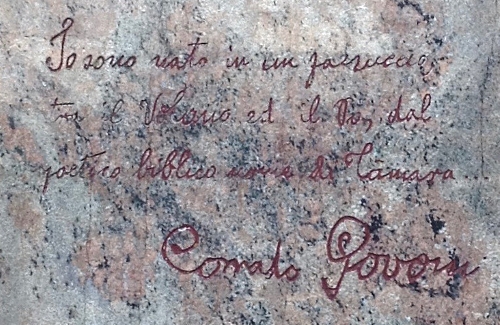 Io sono nato in un paesuccio
tra il Volano ed il Po, dal
poetico biblico nome di Tamara
Corrado Govoni